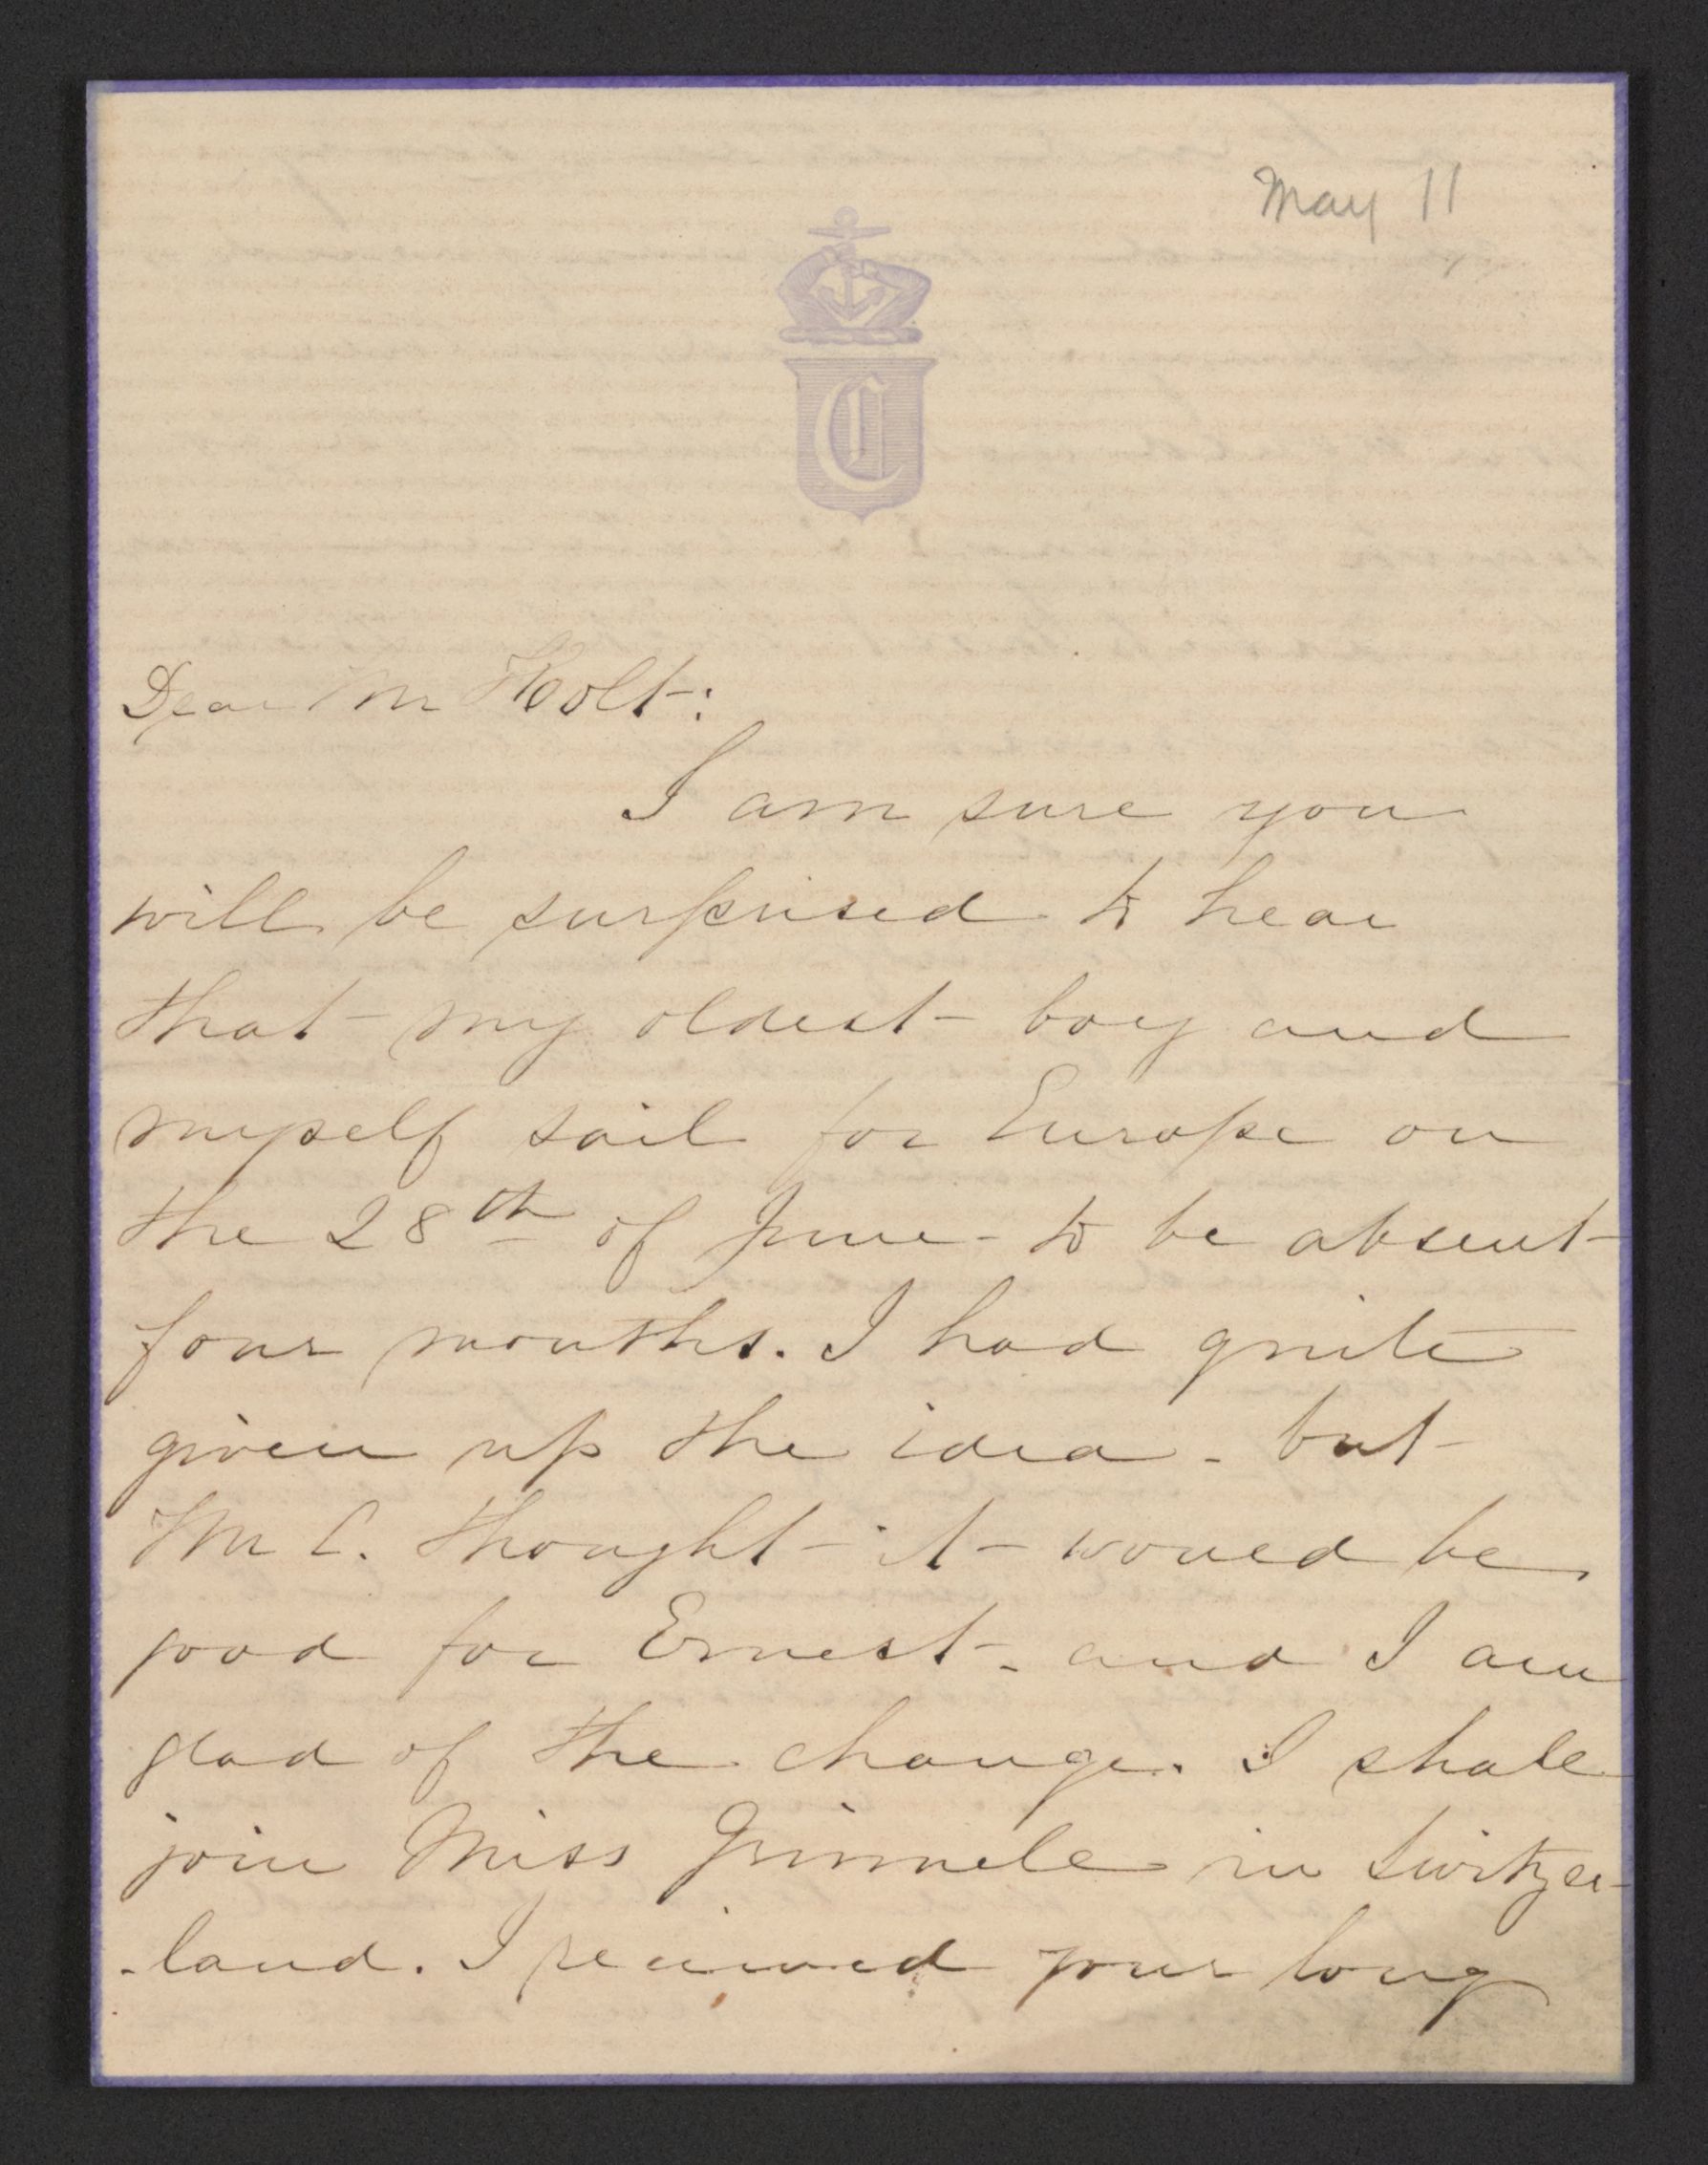 May 11
C
Dear Mr Holt:
I am sure you
will be surprised to hear
that my oldest boy and
myself sail for Europe on
the 28th of June - to be absent
four months. I had quite
given up the idea - but
Mr C. thought it would be
good for Ernest - and I am
glad of the change. I shall
join Miss Grinnell in Switzer-
-land. I received your long